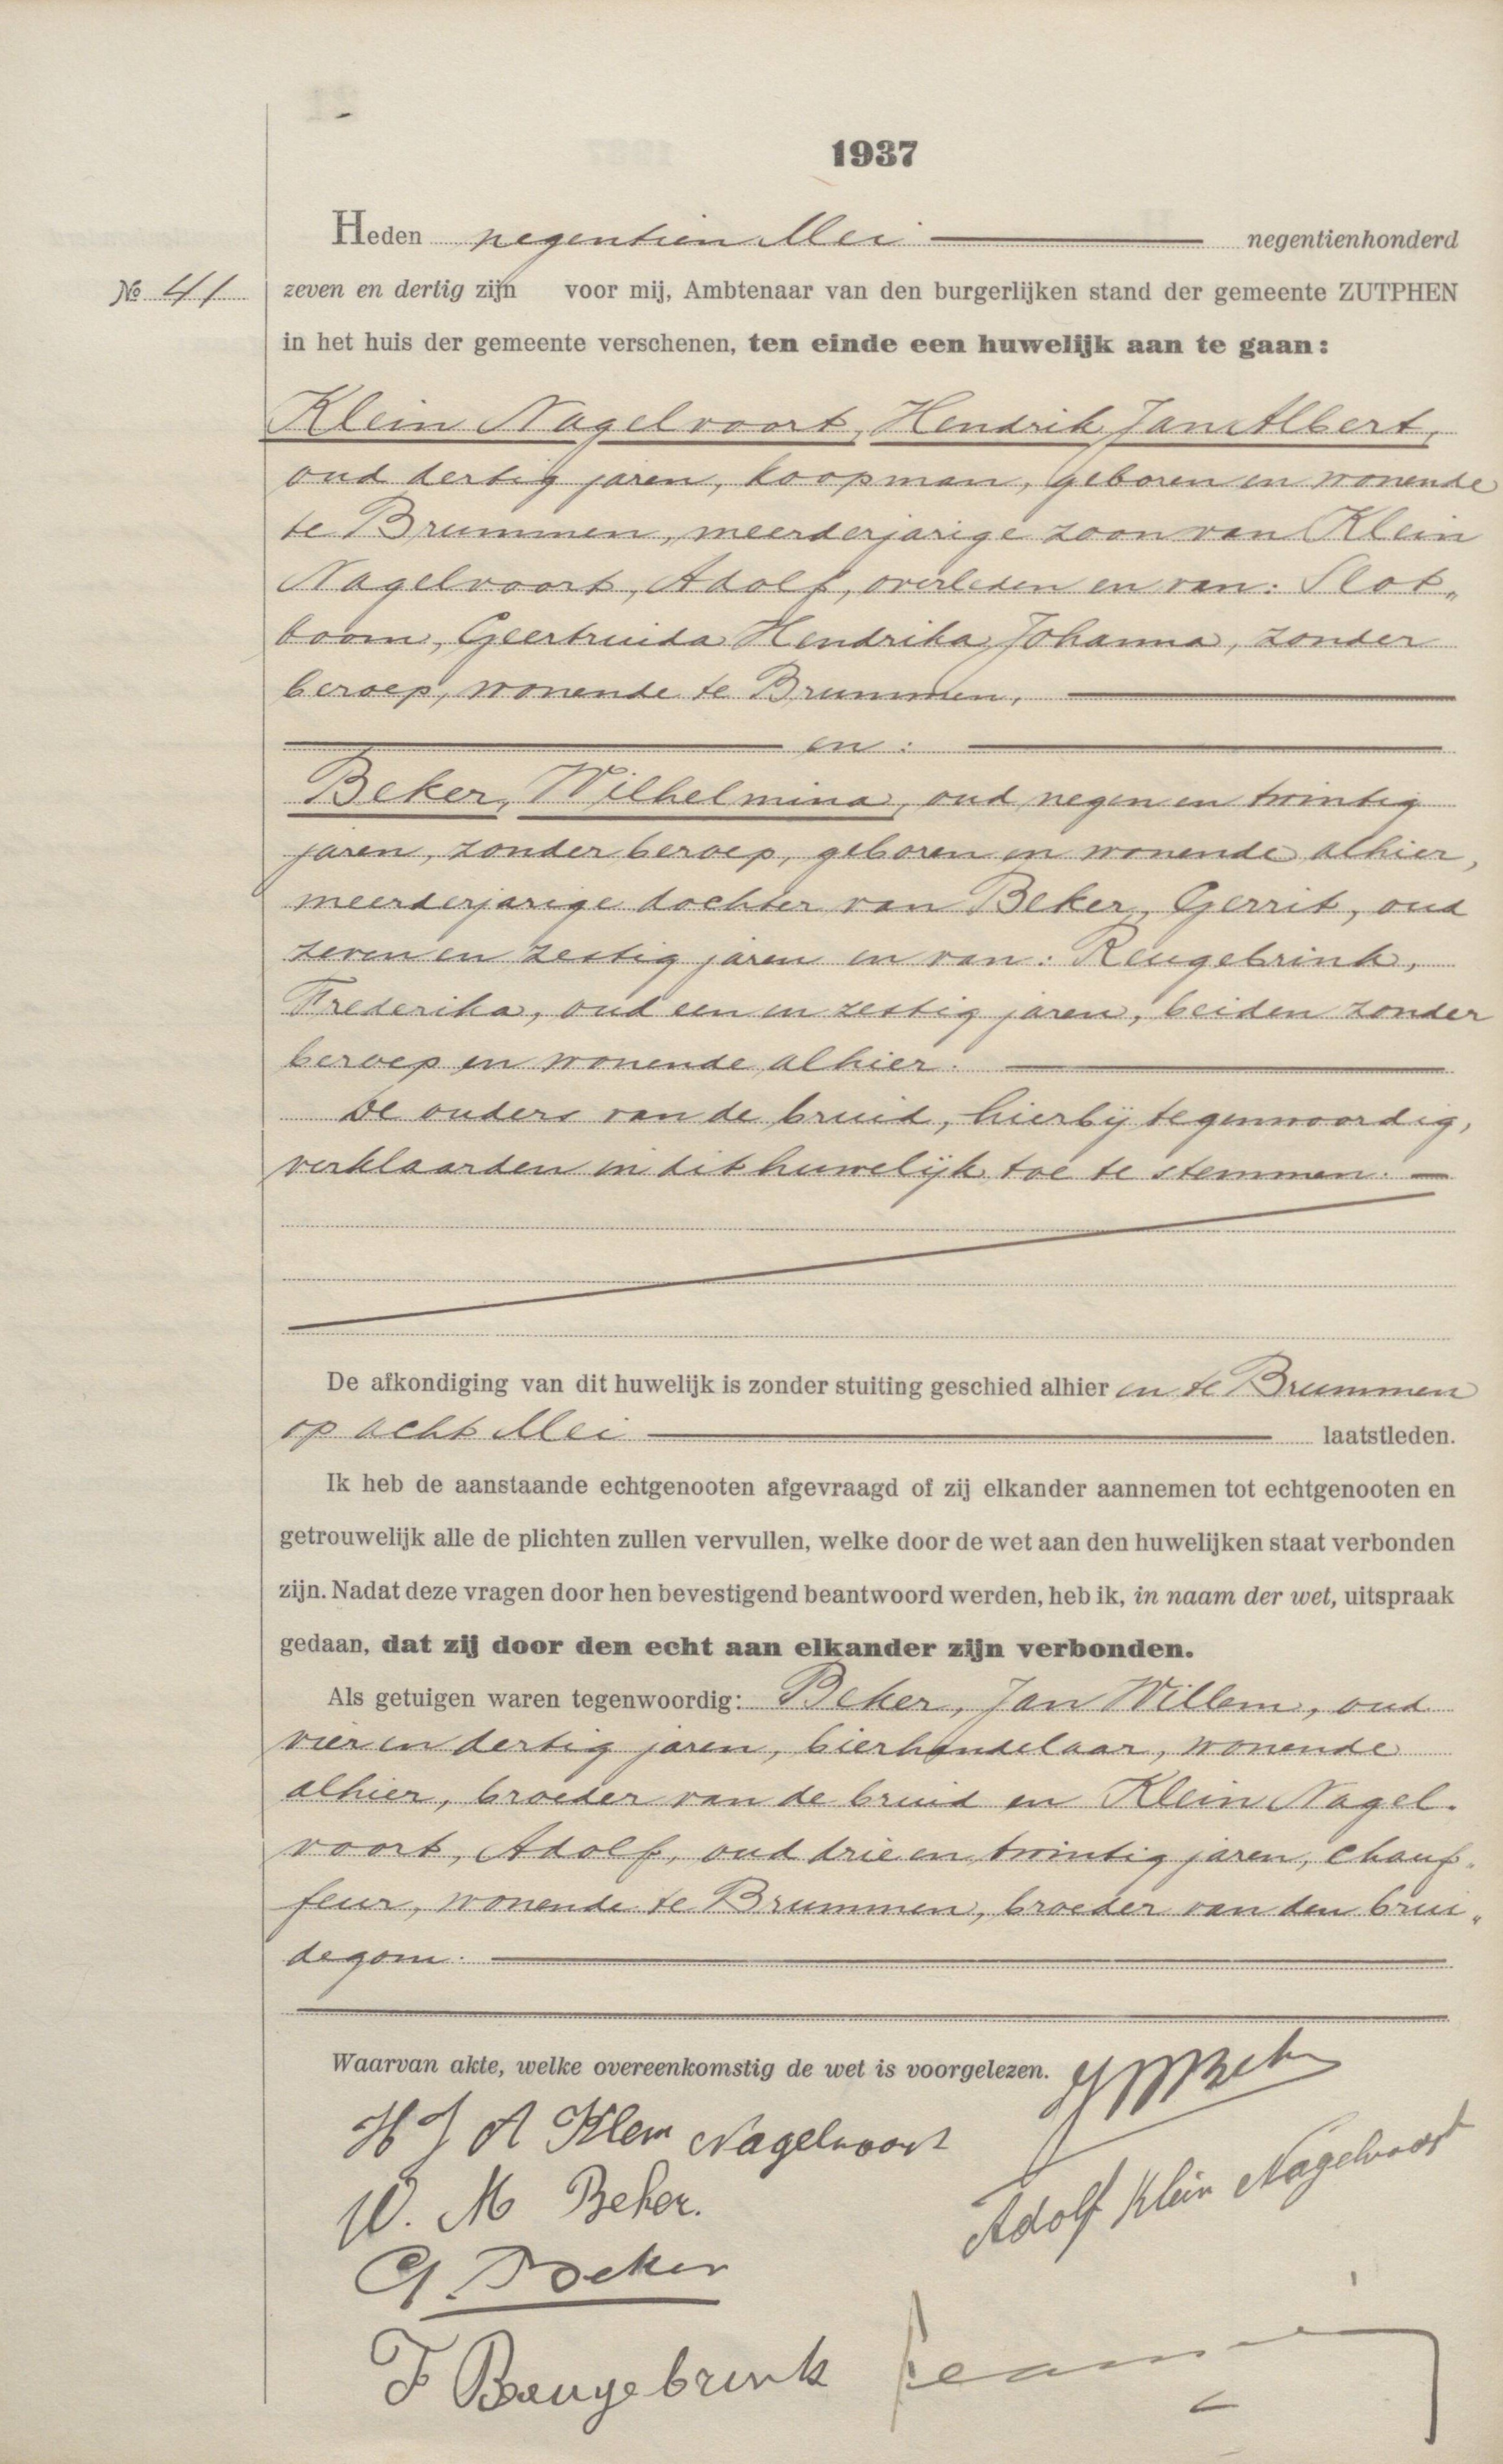 1937
Heden negentien Mei negentienhonderd
No 41
zeven en dertig zijn voor mij, Ambtenaar van den burgerlijken stand der gemeente ZUTPHEN
in het huis der gemeente verschenen, ten einde een huwelijk aan te gaan:
Klein Nagelvoort, Hendrik Jan Albert,
oud dertig jaren, koopman, geboren en wonende
te Brummen, meerderjarige zoon van Klein
Nagelvoort, Adolf, overleden en van: Slot„
boom, Geertruida Hendrika Johanna, zonder
beroep, wonende te Brummen,
en:
Beker, Wilhelmina, oud negen en twintig
jaren, zonder beroep, geboren en wonende alhier,
meerderjarige dochter van Beker, Gerrit, oud
zeven en zestig jaren en van: Reugebrink,
Frederika, oud een en zestig jaren, beiden zonder
beroep en wonende alhier.
De ouders van de bruid, hierbij tegenwoordig,
verklaarden in dit huwelijk toe te stemmen.
De afkondiging van dit huwelijk is zonder stuiting geschied alhier en te Brummen
op acht Mei laatstleden.
Ik heb de aanstaande echtgenooten afgevraagd of zij elkander aannemen tot echtgenooten en
getrouwelijk alle de plichten zullen vervullen, welke door de wet aan den huwelijken staat verbonden
zijn. Nadat deze vragen door hen bevestigend beantwoord werden, heb ik, in naam der wet, uitspraak
gedaan, dat zij door den echt aan elkander zijn verbonden.
Als getuigen waren tegenwoordig: Beker, Jan Willem, oud
vier en dertig jaren, bierhandelaar, wonende
alhier, broeder van de bruid en Klein Nagel-
voort, Adolf, oud drie en twintig jaren, chauf-
feur, wonende te Brummen, broeder van den brui„
degom.
Waarvan akte, welke overeenkomstig de wet is voorgelezen.
H J A Klein Nagelvoort
Adolf Klein Nagelvoort
W. M Beker.
G. Beker
F Reugebrink